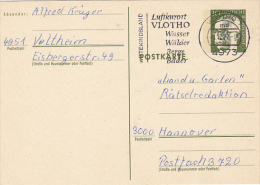 Absender: Alfred Krüger
4951 Veltheim
Eisbergerstr. 49
(Straße und Hausnummer oder Postfach)
WESERBERGLAND
Luftkurort
VLOTHO
Wasser
Wälder
Berge
Bäder
4973
POSTKARTE
"Land u. Garten"
Rätselredaktion
3000 Hannover
Postfach 3720
(Straße und Hausnummer oder Postfach)